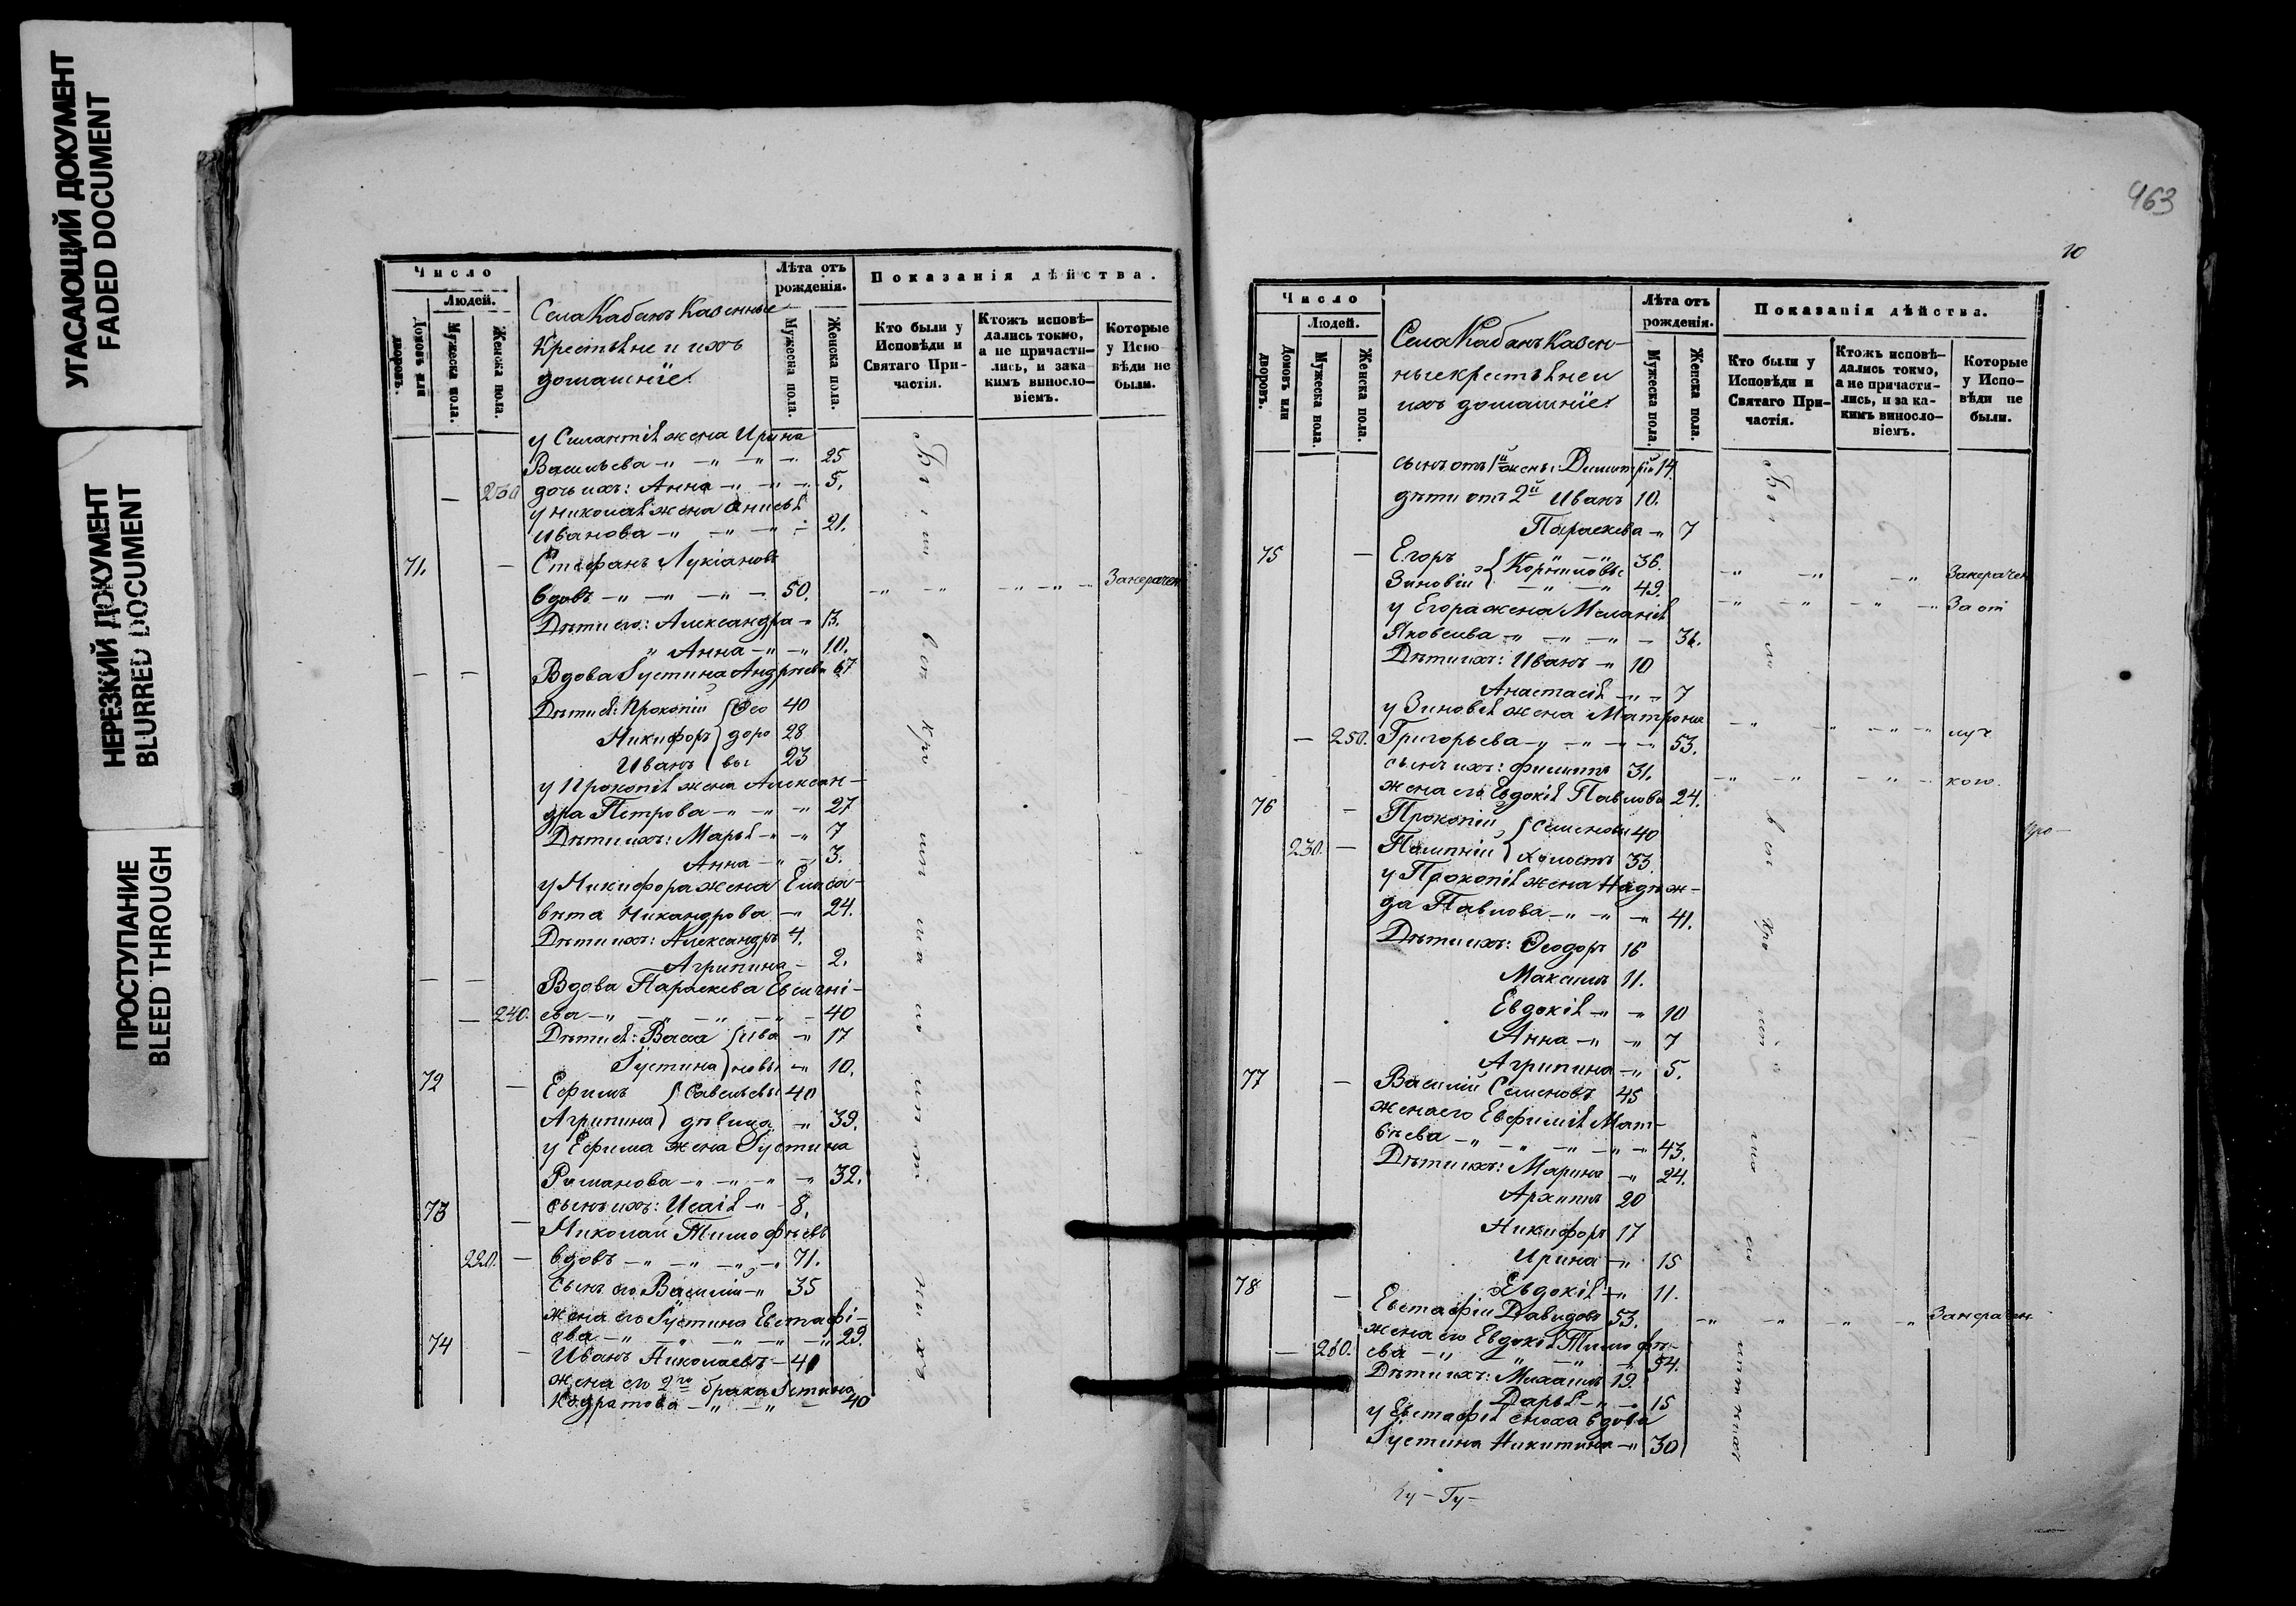 УГАСАЮЩИЙ ДОКУМЕНТ
FADED DOCUMENT
НЕРЕЗКИЙ ДОКУМЕНТ
BLURRED DOCUMENT
ПРОСТУПАНИЕ
BLEED THROUGH
Число
Людей.
Домовъ или дворовъ.
Мужеска пола.
Женска пола.
Села Кабанъ Казенные
Крестьяне и ихъ
домашніе.
Лѣта отъ рожденія.
Мужеска пола.
Женска пола.
Показанія дѣйства.
Кто были у Исповѣди и Святаго Причастія.
Ктожъ исповѣдались токмо, а не причастились, и за какимъ винословіемъ.
Которые у Исповѣди не были.
у Силантія жена Ирина
Васильева 25
230 дочь ихъ: Анна 5.
у Николая жена Анисья
Иванова 21.
71. Стефанъ Лукіановъ
вдовъ 50.
Дѣти его: Александра 13.
Анна 10.
Вдова Іустина Андреева 67
Дѣти ея: Прокопій { Ѳео 40
Никифоръ доро 28
Иванъ вы 23
у Прокопія жена Алексан-
дра Петрова 27
Дѣти ихъ: Марья 7
Анна 3.
у Никифора жена Елиса-
вета Никандрова 24.
Дѣти ихъ: Александръ 4.
Агрипина 2.
Вдова Параскева Евгені-
240. ева 40
Дѣти ея: Васса { Ива 17
Іустина новы 10.
72 Ефимъ { Савельевы 40
Агрипина дѣвица 39.
у Ефима жена Іустина
Романова 32.
сынъ ихъ: Исаія 8.
73 Николай Тимофѣевъ
220. вдовъ 71.
Сынъ его Василій 35
жена его Іустина Евстафі-
ева 29.
74 Иванъ Николаевъ 41
жена его 2го брака Устина
Кодратова 40
463
10
Число
Людей.
Домовъ или дворовъ.
Мужеска пола.
Женска пола.
Села Кабанъ Казен-
ные крестьяне и
ихъ домашніе.
Лѣта отъ рожденія.
Мужеска пола.
Женска пола.
Показанія дѣйства.
Кто были у Исповѣди и Святаго Причастія.
Ктожъ исповѣдались токмо, а не причастились, и за какимъ винословіемъ.
Которые у Исповѣди не были.
сынъ отъ 1й жены: Димитрій 14.
дѣти отъ 2й Иванъ 10.
Параскева 7
75 Егоръ { Корниловы 36.
Зиновій 49. За от
у Егора жена Меланія
Яковлева 36.
Дѣти ихъ: Иванъ 10
Анастасія 7
у Зиновія жена Матрона
250. Григорьева 53. луч
сынъ ихъ: Филиппъ 31. кою.
жена его Евдокія Павлова 24.
76 Прокопій { Семеновы 40
230. холостъ 33.
у Прокопія жена Надеж-
да Павлова 41.
Дѣти ихъ: Ѳеодоръ 16
Максимъ 11.
Евдокія 10
Анна 7
Агрипина 5.
77 Василій Семеновъ 45
жена его Евфимія Мат-
вѣева 43.
Дѣти ихъ: Марина 24.
Архипъ 20
Никифоръ 17
Ирина 15
Евдокія 11.
78 Евстафій Давидовъ 53.
жена его Евдокія Тимофѣ-
260. ева 54.
Дѣти ихъ: Михаилъ 19.
Дарья 15
у Евстафія сноха вдова
Іустина Никитина 30